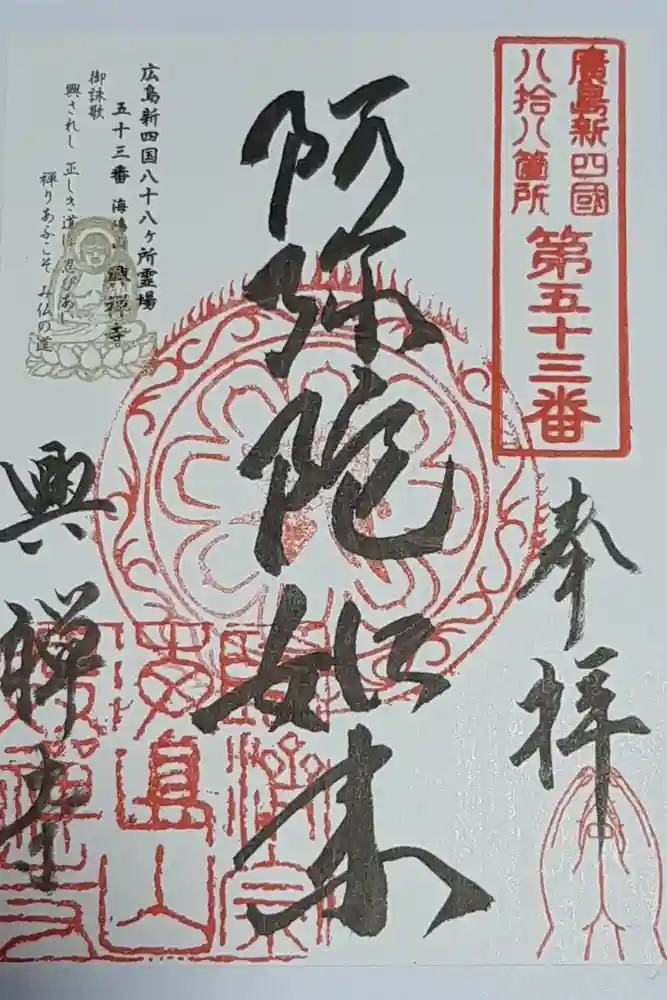 廣島新四國
八拾八箇所
第五十三番
奉拝
阿弥陀如来
広島新四国八十八ヶ所霊場
五十三番 海嶋山 興禅寺
御詠歌
興されし 正しき道は 忍びあい
禅りあふこそ み仏の道
興禅寺
海島山